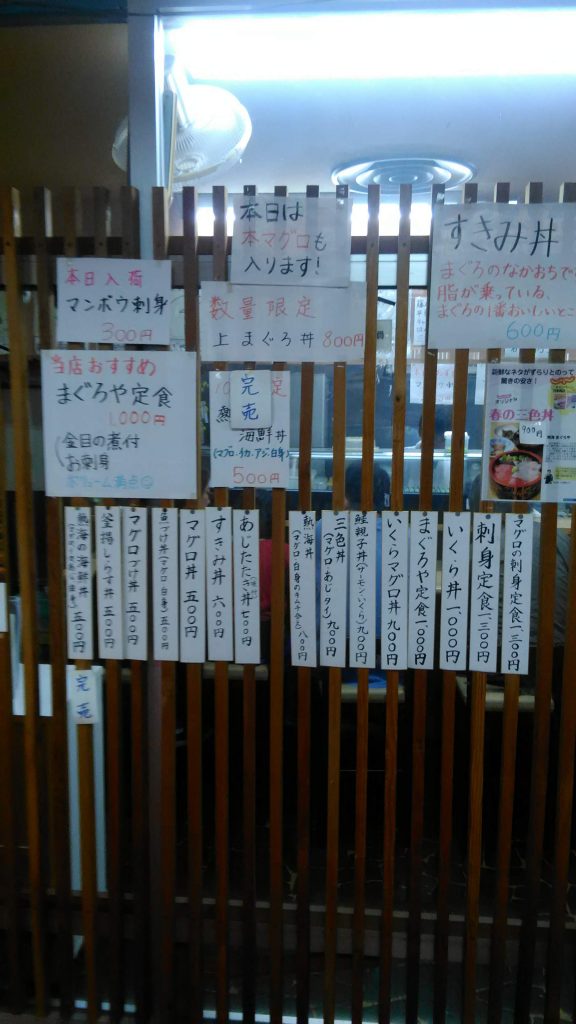 本日は
本マグロも
入ります!
すきみ丼
まぐろのなかおちで
脂が乗っている、
まぐろの1番おいしいとこ
600円
本日入荷
マンボウ刺身
300円
数量限定
上まぐろ丼 800円
当店おすすめ
まぐろや定食
1,000円
金目の煮付
お刺身
ボリューム満点
完売
定
海鮮丼
500円
新鮮なネタがずらりとのって
驚きの安さ!
春の三色丼
900円
マグロの刺身定食 一、三〇〇円
刺身定食 一、三〇〇円
いくら丼 一、〇〇〇円
まぐろや定食 一、〇〇〇円
いくらマグロ丼 九〇〇円
鮭親子丼(サーモン・いくら)九〇〇円
三色丼(マグロ あじ タイ)九〇〇円
熱海丼
八〇〇円
あじたたき丼
七〇〇円
すきみ丼 六〇〇円
マグロ丼 五〇〇円
づけ丼(マグロ 白身)五〇〇円
マグロづけ丼 五〇〇円
釜揚しらす丼 五〇〇円
熱海の海鮮丼
五〇〇円
完売